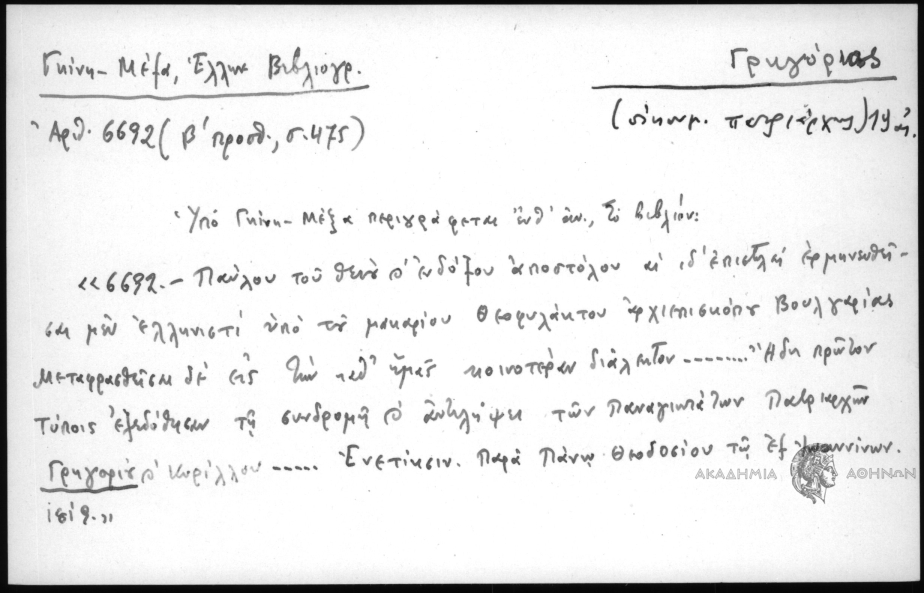 Γκίνη - Μέξα, Ἑλλην. Βιβλιογρ.
Γρηγόριος
Ἀριθ. 6692 (Β' προσθ., σ. 475)
(οἰκουμ. πατριάρχης) 19 αἰ.
Ὑπὸ Γκίνη - Μέξα περιγράφεται ἔνθ' ἀν., τὸ βιβλίον:
«6692.- Παύλου τοῦ θείου & ἐνδόξου ἀποστόλου αἱ ιδ' ἐπιστολαὶ ἑρμηνευθεῖ-
σαι μὲν ἑλληνιστὶ ὑπὸ τοῦ μακαρίου Θεοφυλάκτου ἀρχιεπισκόπου Βουλγαρίας
Μεταφρασθεῖσαι δὲ εἰς τὴν καθ' ἡμᾶς κοινοτέραν διάλεκτον --------- Ἤδη πρῶτον
τύποις ἐξεδόθησαν τῇ συνδρομῇ & ἀντιλήψει τῶν Παναγιωτάτων Πατριαρχῶν
Γρηγορίου & Κυρίλλου ----- Ἐνετίησιν. Παρὰ Πάνῳ Θεοδοσίου τῷ ἐξ Ἰωαννίνων.
ΑΚΑΔΗΜΙΑ ΑΘΗΝΩΝ